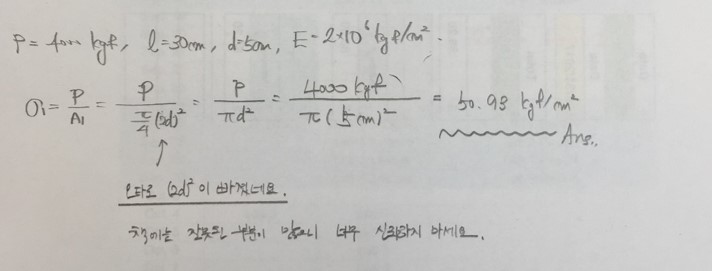 P = 4000 kgf, l = 30cm, d = 5cm, E = 2×10⁶ kgf/cm².
σ₁ = P/A₁ = P/(π/4 (2d)²) = P/(πd²) = 4000 kgf/(π(5cm)²) = 50.93 kgf/cm²
Ans.
오타로 (2d)²이 빠졌네요.
책에는 잘못된 부분이 많으니 너무 신뢰하지 마세요.